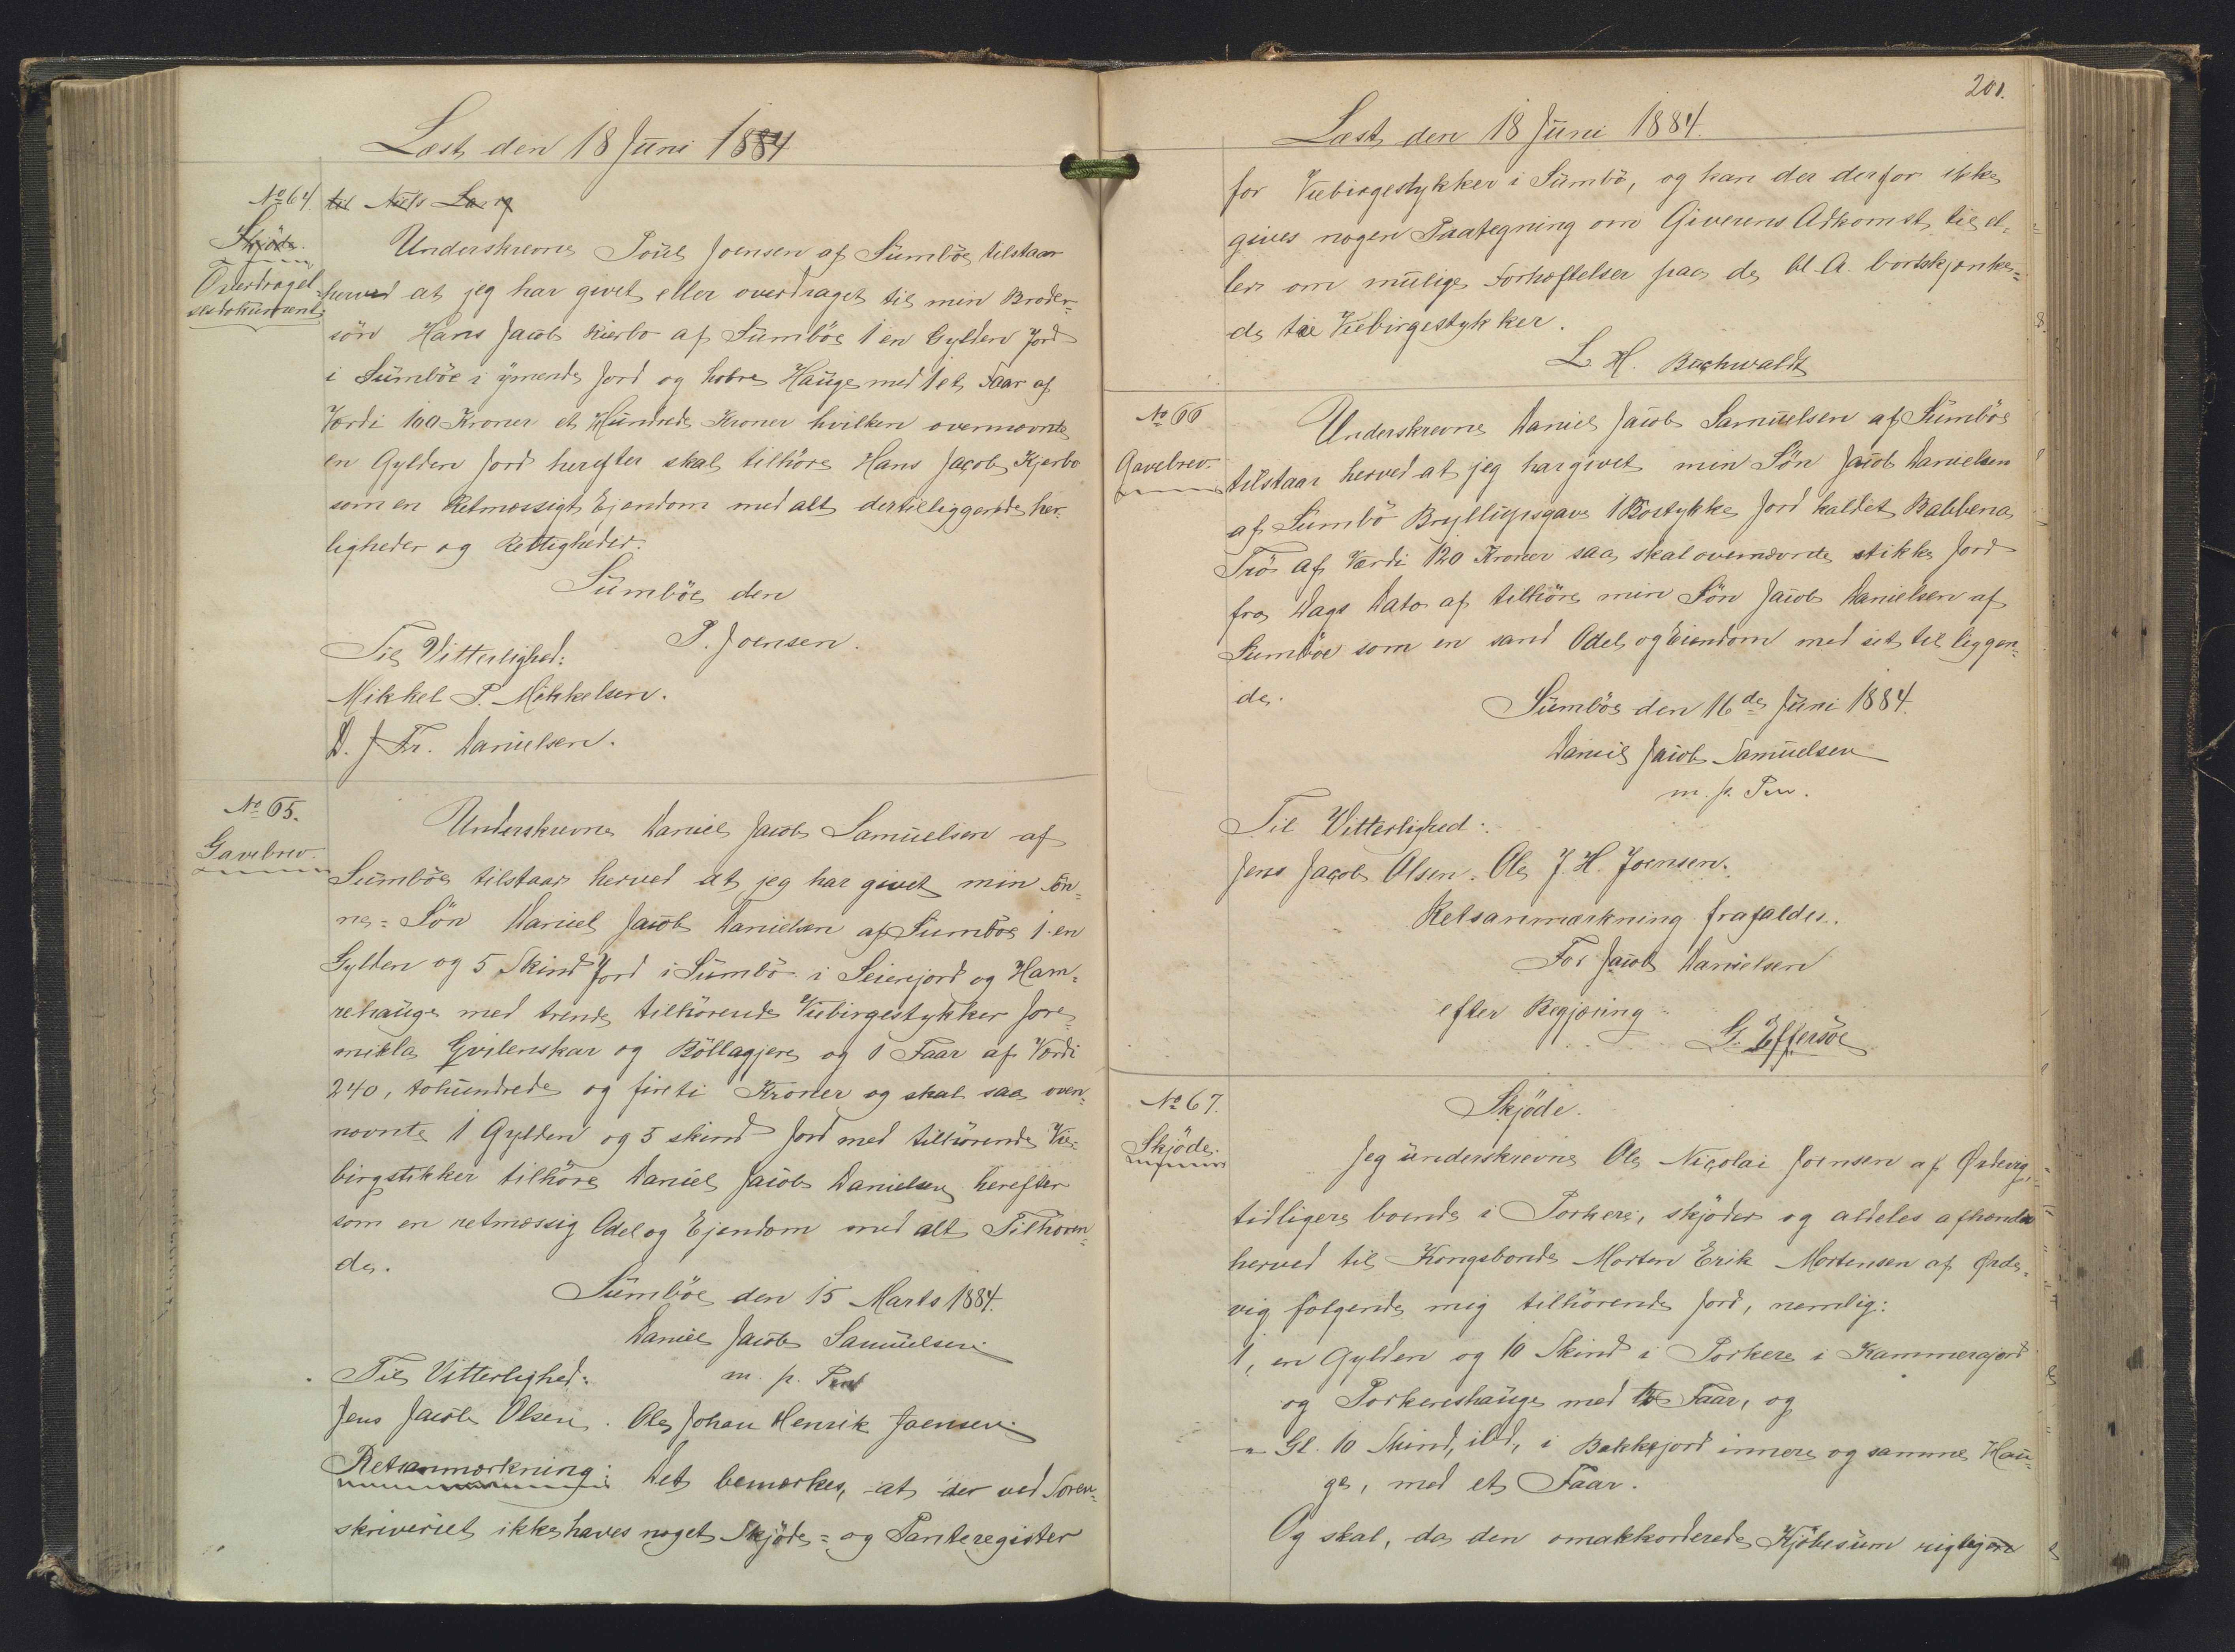 Læst den 18 Juni 1884
№ 64.
Skjöde.
Overdragel-
sesdokument.
til Niels Berg
Underskrevne Poul Joensen af Sumböe tilstaar
herved at jeg har givet eller overdraget til min Broder-
sön Hans Jacob Kierbo af Sumböe 1 en Gylden Jord
i Sumböe i ÿmende Jord og hobre Hauge med 1 et Faar af
Værdi 100 Kroner et Hundrede Kroner hvilken overnævnte
en Gylden Jord herefter skal tilhöre Hans Jacob Kjerbo
som en Retmæssigt Ejendom med alt dertilliggende her-
ligheder og Rettigheder.
Sumböe den
P. Joensen.
Til Vitterlighed:
Mikkel P. Mikkelsen.
D. J. Fr. Danielsen.
№ 65.
Gavebrev.
Underskrevne Daniel Jacob Samuelsen af
Sumböe tilstaar herved at jeg har givet min Sön-
ne-Sön Daniel Jacob Danielsen af Sumböe 1 en
Gylden og 5 Skind Jord i Sumbö i Seierjord og Ham-
rehauge med trende tilhörende Viebirgestykker Fore-
mikla Gvilenskar og Böllagjere og 1 Faar af Værdi
240, tohundrede og fireti Kroner og skal saa oven-
nævnte 1 Gylden og 5 skind Jord med tilhörende Vie-
birgstikker tilhöre Daniel Jacob Danielsen herefter
som en retmæssig Odel og Ejendom med alt Tilhören-
de.
Sumböe den 15 Marts 1884.
Daniel Jacob Samuelsen
m. p. Pen
Til Vitterlighed:
Jens Jacob Olsen. Ole Johan Henrik Joensen.
Retsanmærkning: Det bemærkes, at der ved Soren-
skriveriet ikke haves noget Skjöde- og Panteregister
201.
Læst den 18 Juni 1884.
for Viebirgestykker i Sumbö, og kan der derfor ikke
gives nogen Paategning om Giverens Adkomst til el-
ler om mulige Forhæftelser paa de bl. A. bortskjænke-
de tre Viebirgestykker.
L. H. Buchwaldt
№ 66
Gavebrev.
Underskrevne Daniel Jacob Samuelsen af Sumböe
tilstaar herved at jeg har givet min Sön Jacob Danielsen
af Sumbö Bryllupsgave 1 Böstykke Jord kaldet Babbena
Trö af Værdi 120 Kroner saa skal overnævnte stikke Jord
fra Dags Dato af tilhöre min Sön Jacob Danielsen af
Sumböe som en sand Odel og Eiendom med sit til liggen-
de.
Sumböe den 16de Juni 1884.
Daniel Jacob Samuelsen
m. p. Pen.
Til Vitterlighed:
Jens Jacob Olsen. Ole J. H. Joensen.
Retsanmærkning frafaldes.
For Jacob Danielsen
efter Begjæring
G. Effersöe
№ 67.
Skjöde.
Skjöde.
Jeg underskrevne Ole Nicolai Joensen af Ørdevig,
tidligere boende i Porkere, skjöder og aldeles afhænder
herved til Kongsbonde Morten Erik Mortensen af Ørde-
vig fölgende mig tilhörende Jord, nemlig:
1, en Gylden og 10 Skind i Porkere i Kammerajord
og Porkerishauge med to Faar, og
" Gl. 10 Skind, ibd, i Bakkejord innere og samme Hau-
ge, med et Faar.
Og skal, da den omakkorderede Kjöbesum rigtig